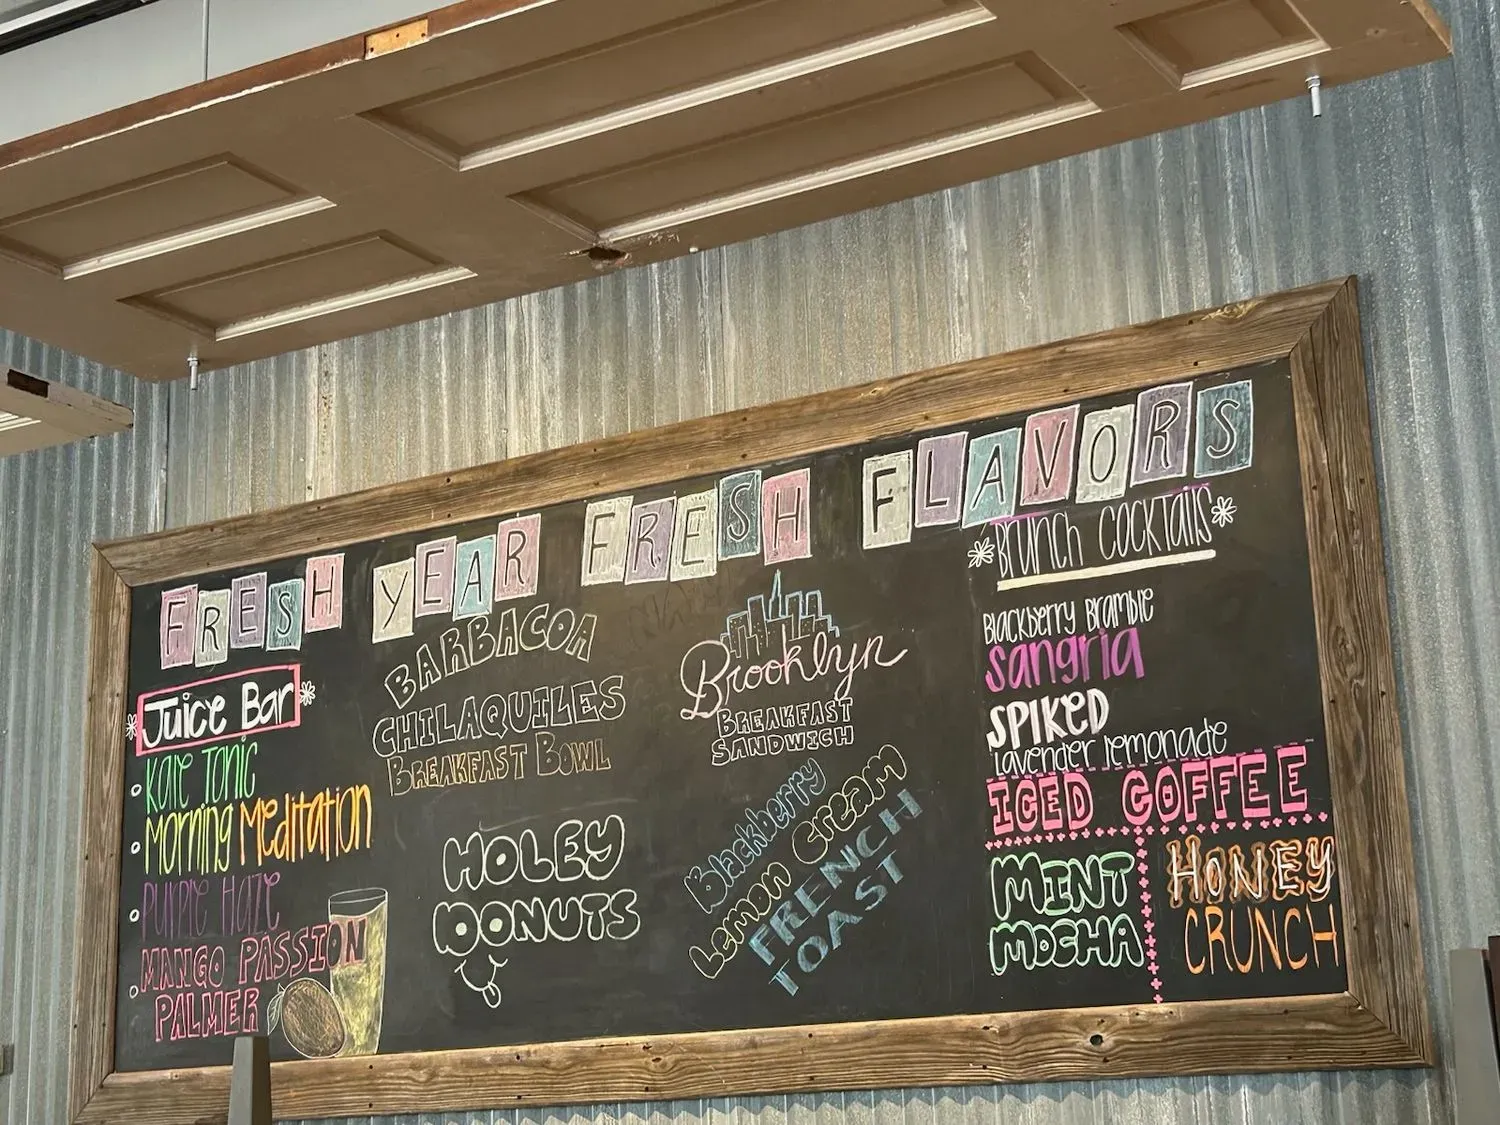 FRESH YEAR FRESH FLAVORS
Juice Bar
Kale Tonic
Morning Meditation
Purple Haze
MANGO PASSION
PALMER
BARBACOA
CHILAQUILES
BREAKFAST BOWL
HOLEY
DONUTS
Brooklyn
BREAKFAST
SANDWICH
Blackberry
Lemon Cream
FRENCH
TOAST
Brunch Cocktails
Blackberry Bramble
Sangria
SPIKED
Lavender Lemonade
ICED COFFEE
MINT
MOCHA
HONEY
CRUNCH